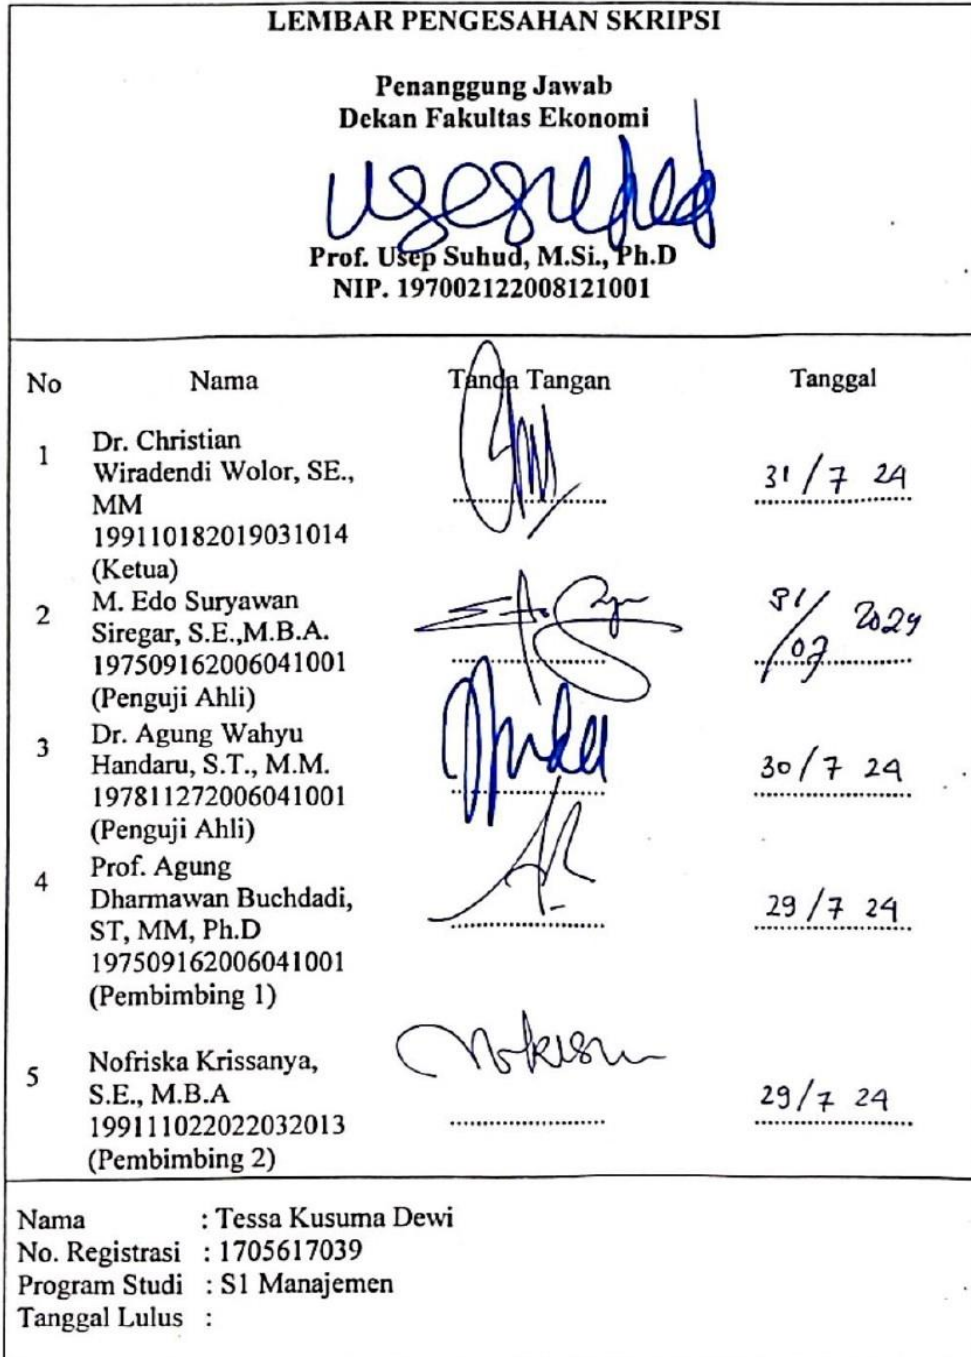 LEMBAR PENGESAHAN SKRIPSI
Penanggung Jawab
Dekan Fakultas Ekonomi
Prof. Usep Suhud, M.Si., Ph.D
NIP. 197002122008121001
No Nama Tanda Tangan Tanggal
1 Dr. Christian
Wiradendi Wolor, SE.,
MM
199110182019031014
(Ketua)
31/7 24
2 M. Edo Suryawan
Siregar, S.E.,M.B.A.
197509162006041001
(Penguji Ahli)
31/07 2024
3 Dr. Agung Wahyu
Handaru, S.T., M.M.
197811272006041001
(Penguji Ahli)
30/7 24
4 Prof. Agung
Dharmawan Buchdadi,
ST, MM, Ph.D
197509162006041001
(Pembimbing 1)
29/7 24
5 Nofriska Krissanya,
S.E., M.B.A
199111022022032013
(Pembimbing 2)
29/7 24
Nama : Tessa Kusuma Dewi
No. Registrasi : 1705617039
Program Studi : S1 Manajemen
Tanggal Lulus :